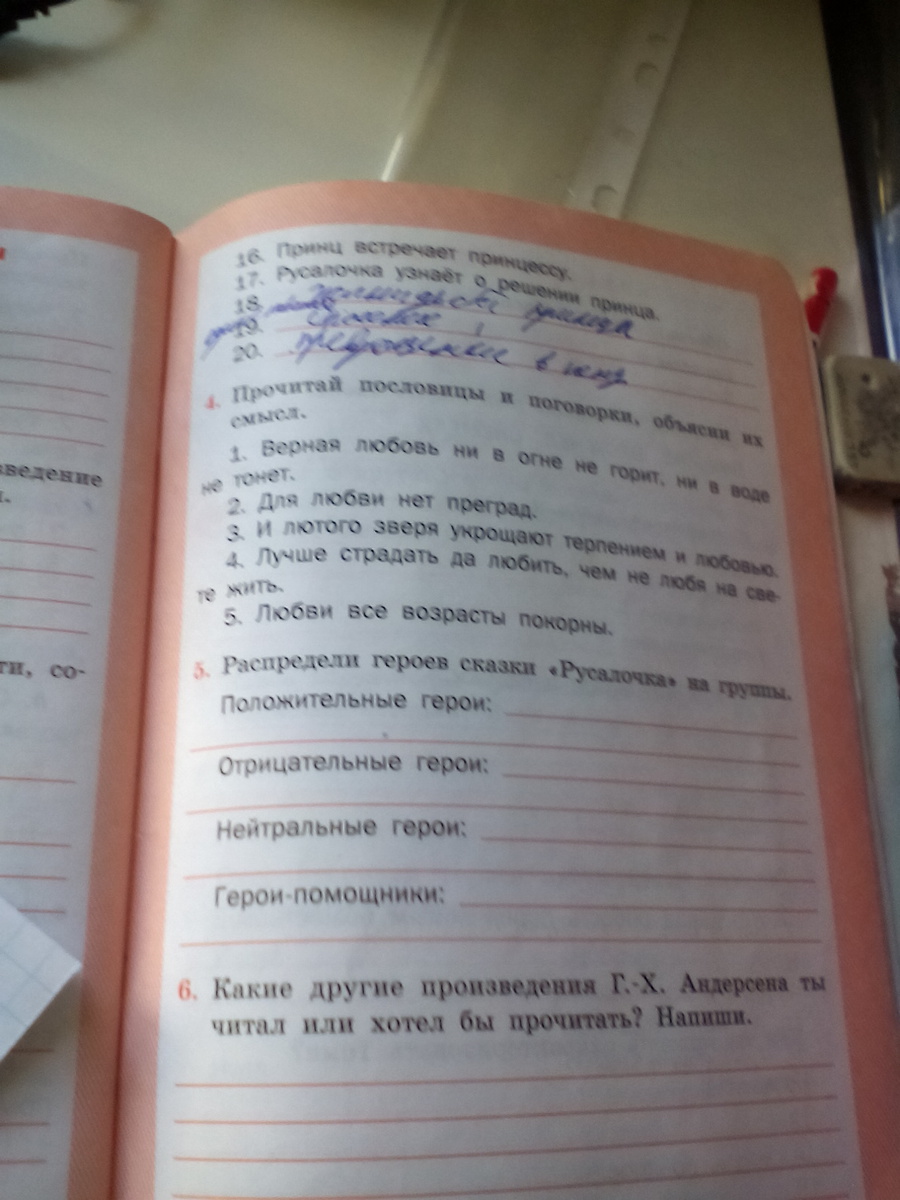 16. Принц встречает принцессу.
17. Русалочка узнаёт о решении принца.
18. принца
19.
20. в пену
4. Прочитай пословицы и поговорки, объясни их
смысл.
1. Верная любовь ни в огне не горит, ни в воде
не тонет.
2. Для любви нет преград.
3. И лютого зверя укрощают терпением и любовью.
4. Лучше страдать да любить, чем не любя на све-
те жить.
5. Любви все возрасты покорны.
5. Распредели героев сказки «Русалочка» на группы.
Положительные герои:
Отрицательные герои:
Нейтральные герои:
Герои-помощники:
6. Какие другие произведения Г.-Х. Андерсена ты
читал или хотел бы прочитать? Напиши.
ведение
ти, со-